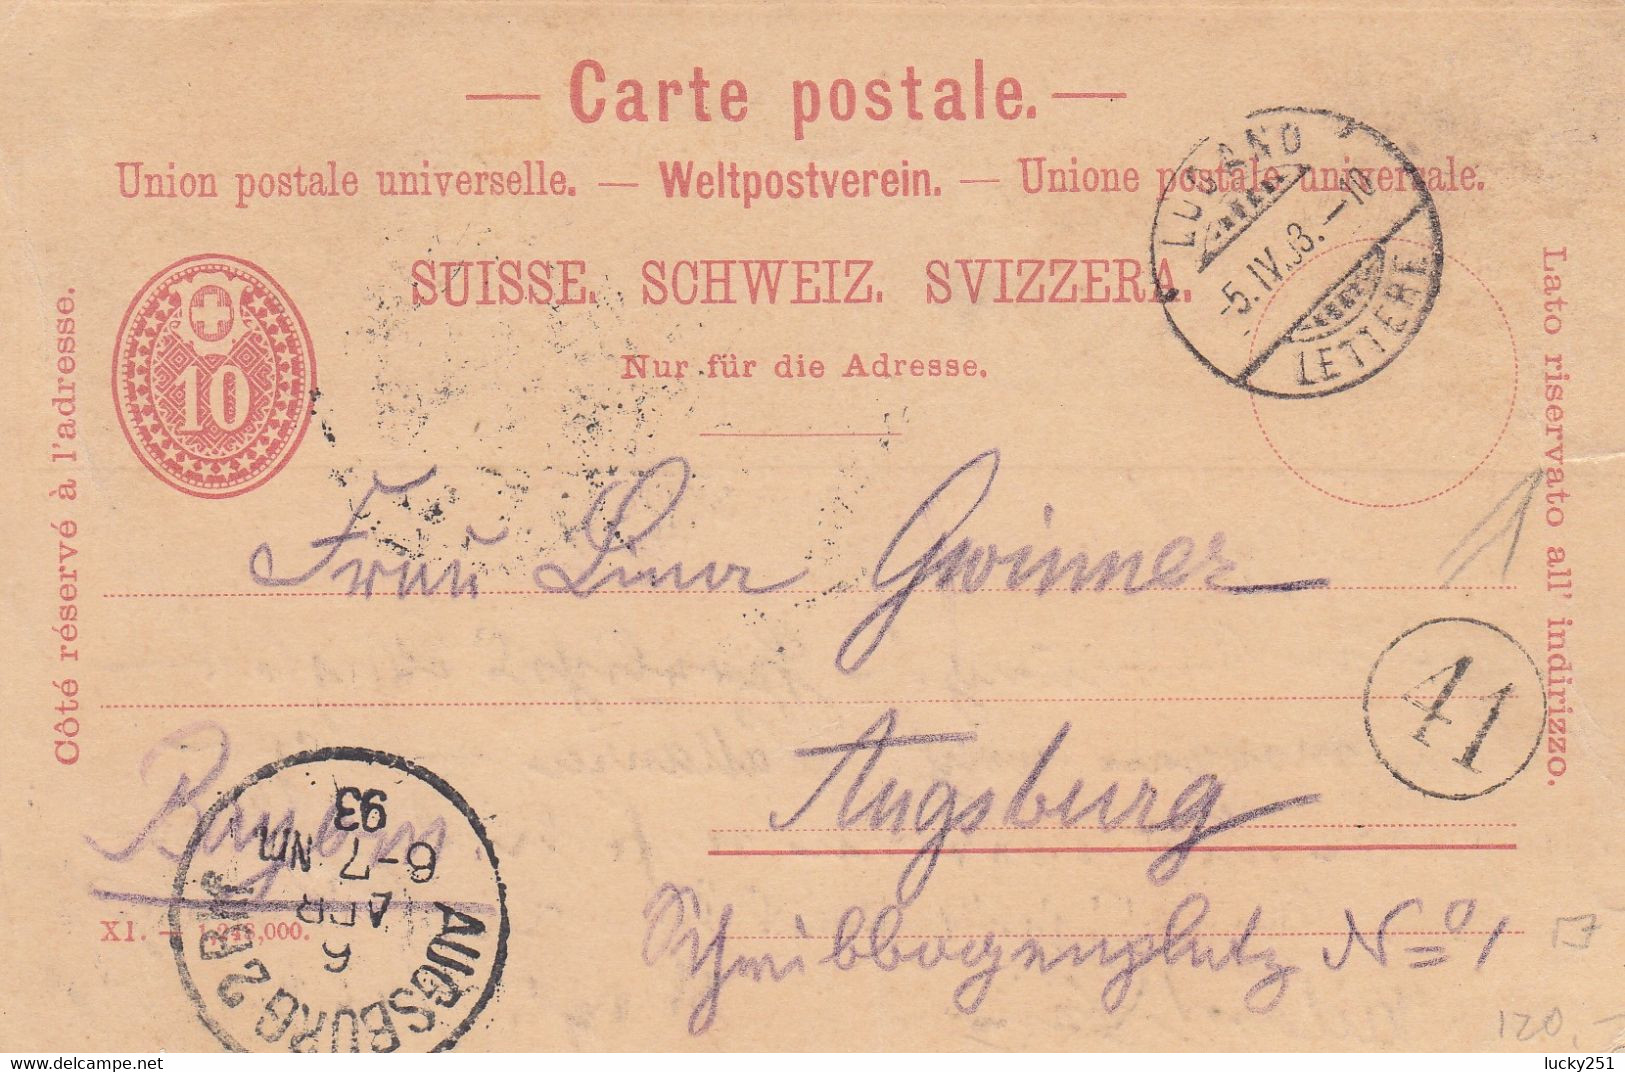 — Carte postale. —
Union postale universelle. — Weltpostverein. — Unione postale universale.
SUISSE. SCHWEIZ. SVIZZERA.
Nur für die Adresse.
LUGANO
-5.IV.93.-10
LETTERE
10
Côté réservé à l'adresse.
Lato riservato all' indirizzo.
Frau Lina Gwinner
1
41
Augsburg
Bayern.
Schwibbogenplatz No 1
XI. — 1,248,000.
AUGSBURG 2
6
APR
6-7 NM
93
120,-
lucky251